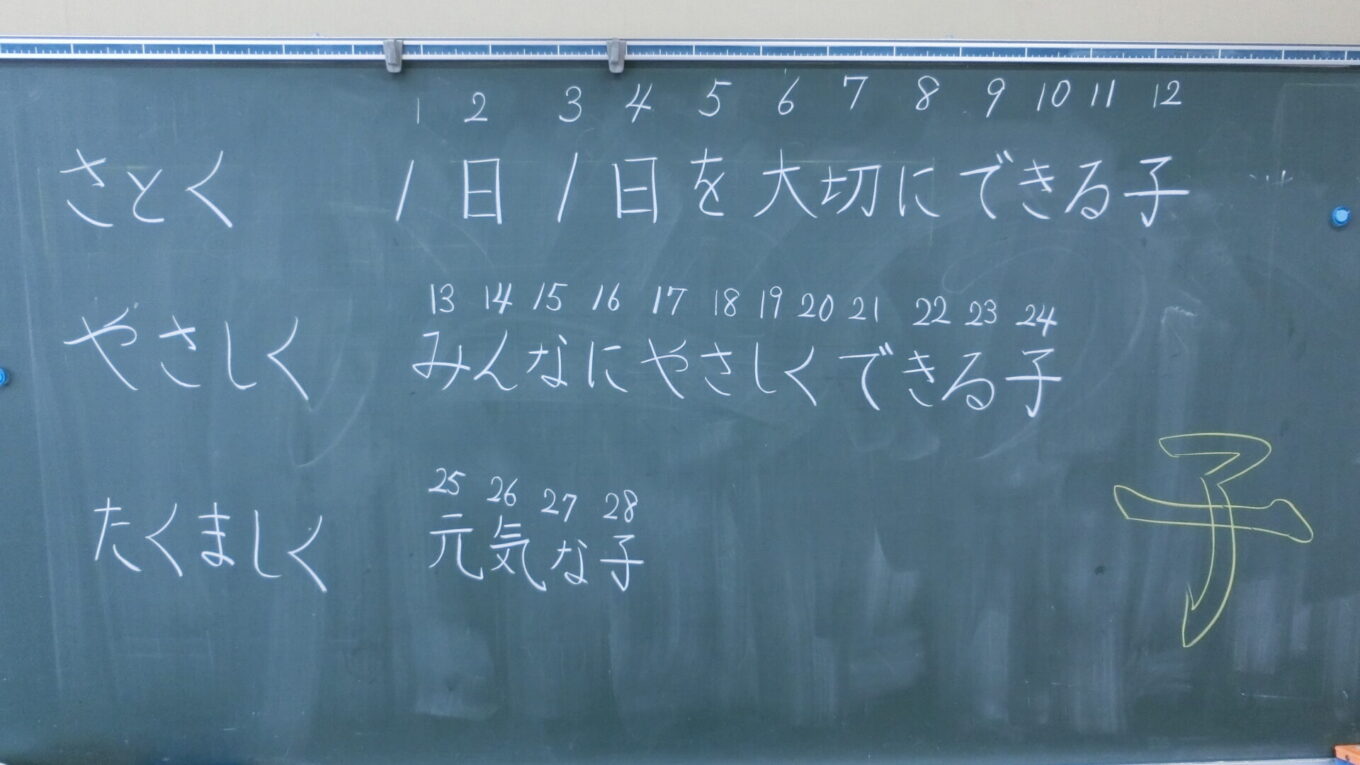 1 2 3 4 5 6 7 8 9 10 11 12
さとく 1日1日を大切にできる子
13 14 15 16 17 18 19 20 21 22 23 24
やさしく みんなにやさしくできる子
25 26 27 28
たくましく 元気な子
子